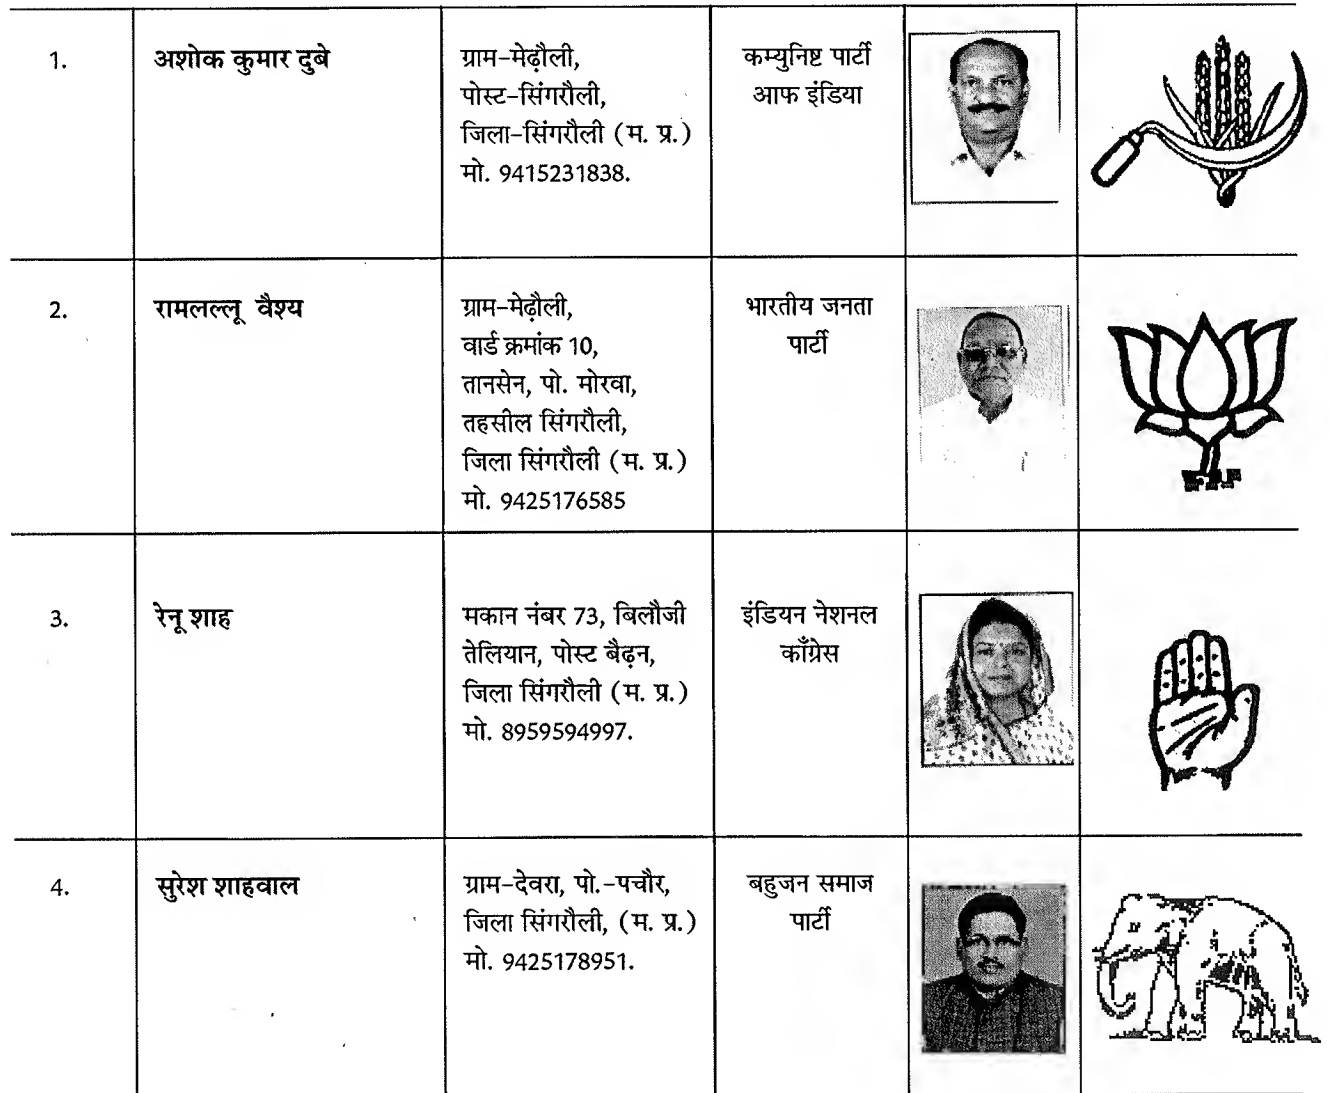 1.
अशोक कुमार दुबे
ग्राम-मेढ़ौली,
पोस्ट-सिंगरौली,
जिला-सिंगरौली (म. प्र.)
मो. 9415231838.
कम्युनिष्ट पार्टी
आफ इंडिया
2.
रामलल्लू वैश्य
ग्राम-मेढ़ौली,
वार्ड क्रमांक 10,
तानसेन, पो. मोरवा,
तहसील सिंगरौली,
जिला सिंगरौली (म. प्र.)
मो. 9425176585
भारतीय जनता
पार्टी
3.
रेनू शाह
मकान नंबर 73, बिलौजी
तेलियान, पोस्ट बैढ़न,
जिला सिंगरौली (म. प्र.)
मो. 8959594997.
इंडियन नेशनल
काँग्रेस
4.
सुरेश शाहवाल
ग्राम-देवरा, पो.-पचौर,
जिला सिंगरौली, (म. प्र.)
मो. 9425178951.
बहुजन समाज
पार्टी